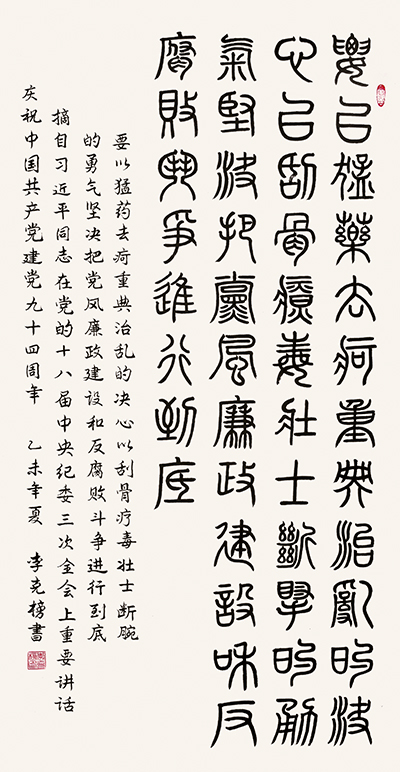 要以猛藥去疴重典治亂的決
心以刮骨療毒壯士斷腕的勇
氣堅決把黨風廉政建設和反
腐敗鬥爭進行到底
要以猛药去疴重典治乱的决心以刮骨疗毒壮士断腕
的勇气坚决把党风廉政建设和反腐败斗争进行到底
摘自习近平同志在党的十八届中央纪委三次全会上重要讲话
庆祝中国共产党建党九十四周年 乙未年夏 李克榜書